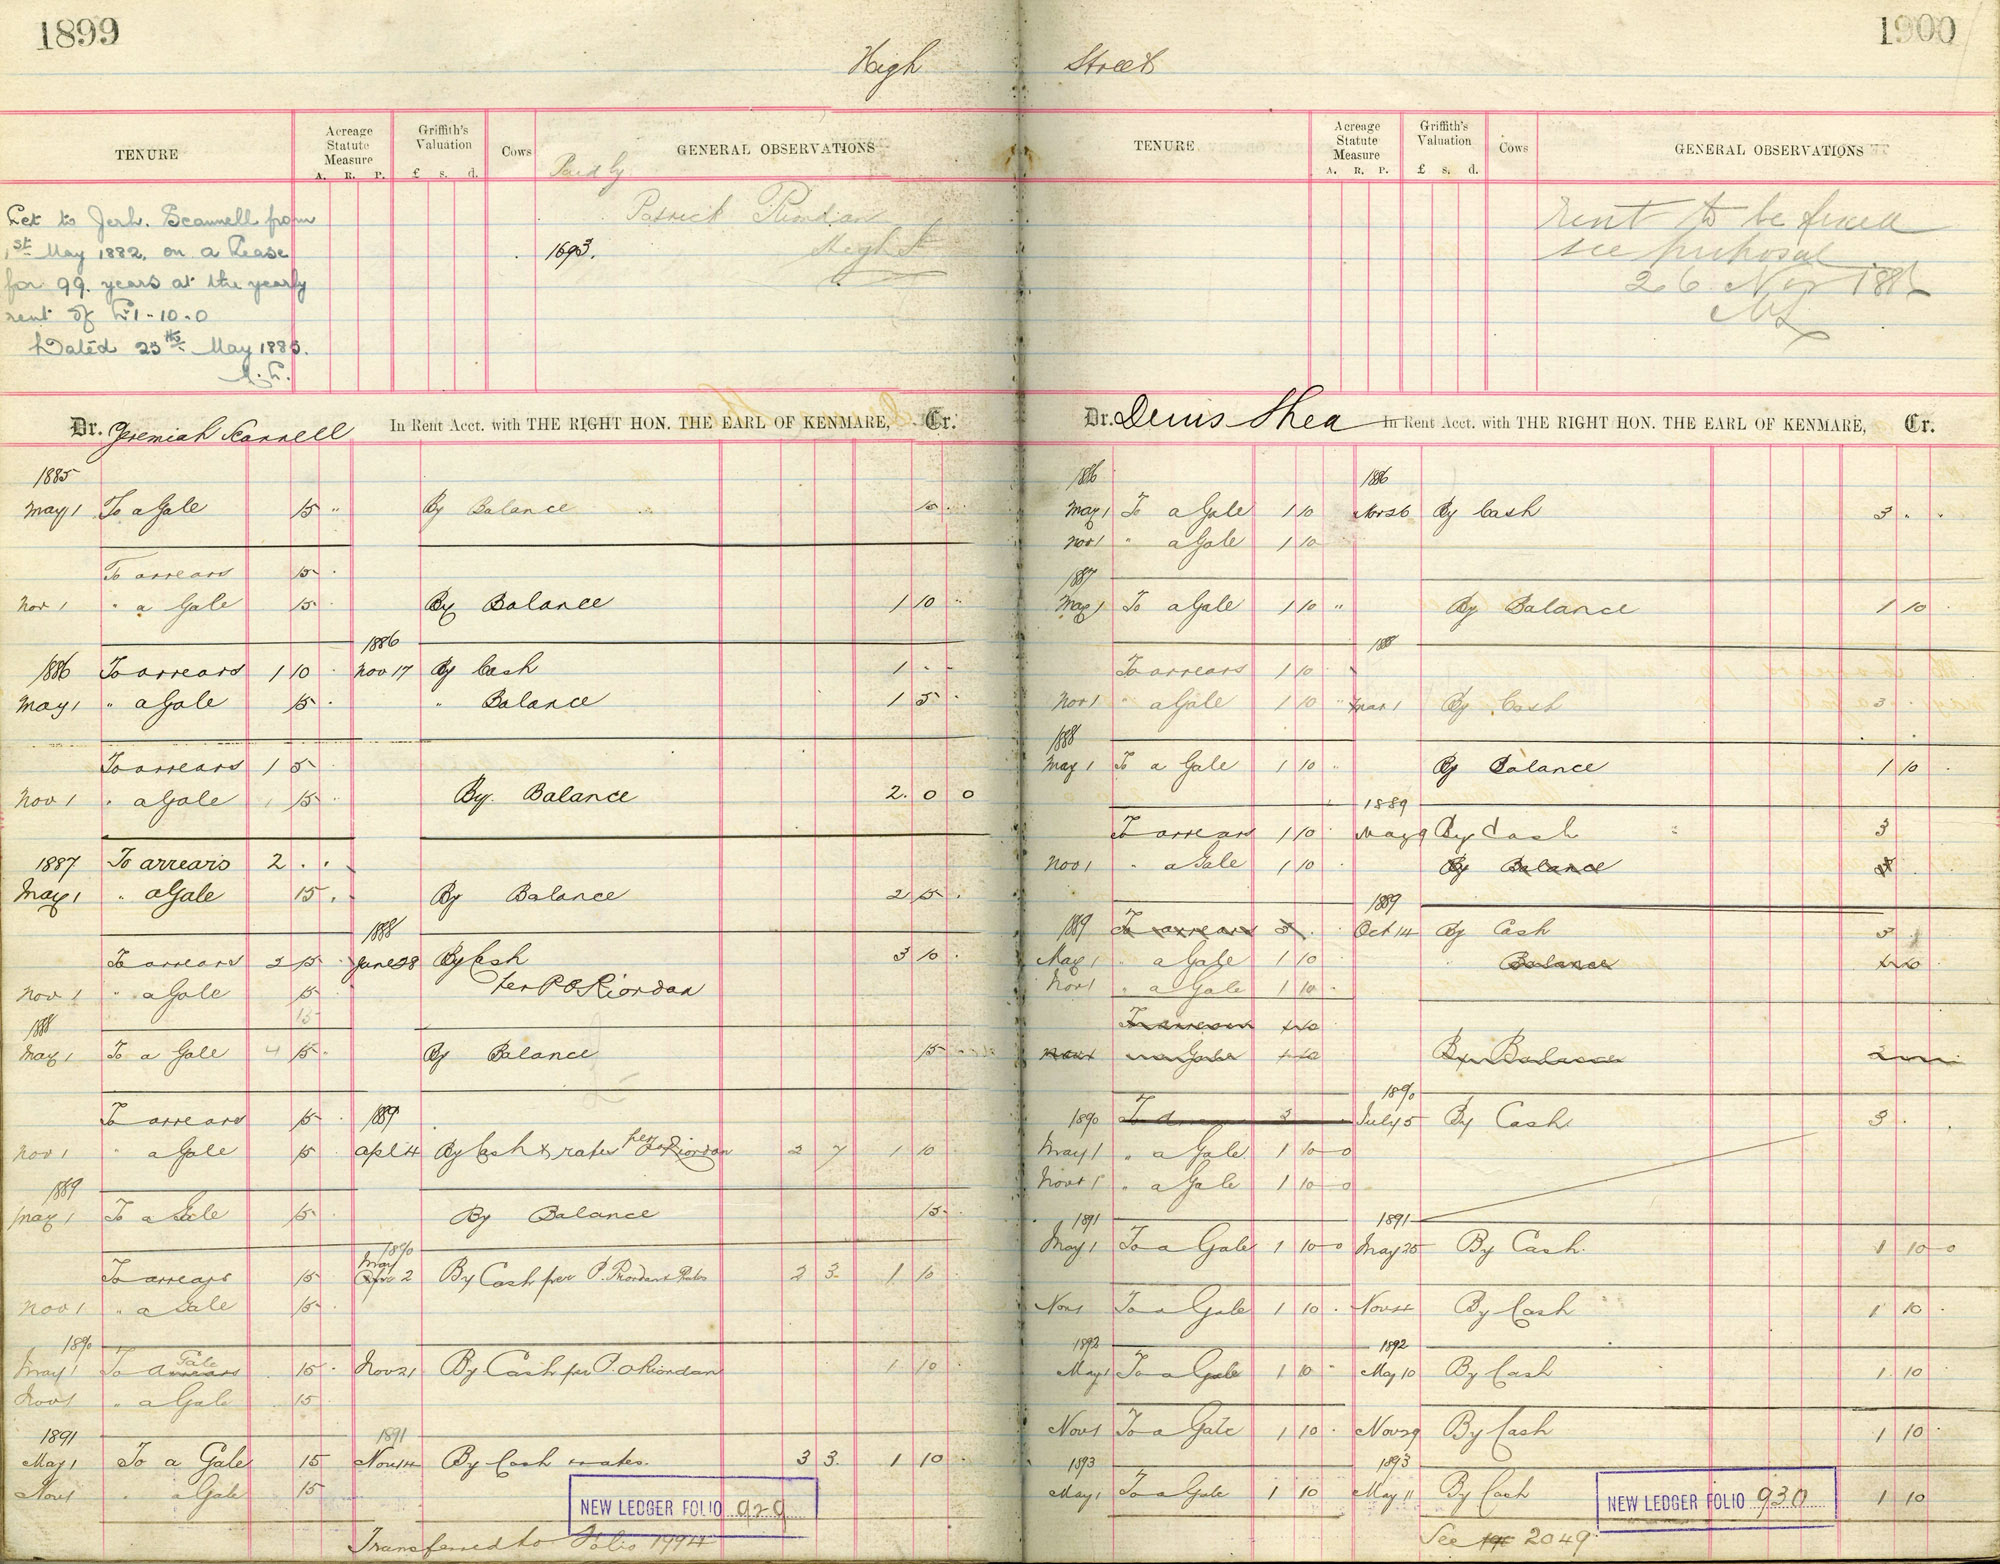 1899
High
TENURE
Acreage Statute Measure
A. R. P.
Griffith's Valuation
£ s. d.
Cows
GENERAL OBSERVATIONS
Paid by
Patrick Riordan
High St
1693.
Let to Jerh. Scannell from
1st May 1882, on a Lease
for 99 years at the yearly
rent of £1-10-0
Dated 23rd May 1885.
Dr. Jeremiah Scannell In Rent Acct. with THE RIGHT HON. THE EARL OF KENMARE, Cr.
1885
May 1 To a Gale 15 " By Balance 15
To arrears 15
Nov 1 " a Gale 15 By Balance 1 10
1886
1886 To arrears 1 10 Nov 17 By Cash 1 - -
May 1 " a Gale 15 " Balance 1 5
To arrears 1 5
Nov 1 " a Gale 15 By Balance 2. 0 0
1887 To arrears 2
May 1 " a Gale 15 By Balance 2 15
1888
To arrears 2 15 June 28 By Cash 3 10
Nov 1 " a Gale 15 per P O Riordan
15
1888
May 1 To a Gale 15 By Balance 15
To arrears 15 1889
Nov 1 " a Gale 15 Apl 4 By Cash & rates per P Riordan 2 7 1 10
1889
May 1 To a Gale 15 By Balance 15
1890
To arrears 15 May 2 By Cash per P. Riordan & Rates 2 3 1 10
Nov 1 " a Gale 15
1890
May 1 To a Gale 15 Nov 21 By Cash per P. O Riordan 1 10
Nov 1 " a Gale 15
1891 1891
May 1 To a Gale 15 Nov 14 By Cash & rates. 3 3 1 10
Nov 1 " a Gale 15
NEW LEDGER FOLIO 929
Transferred to Folio 1994
1900
Street
TENURE
Acreage Statute Measure
A. R. P.
Griffith's Valuation
£ s. d.
Cows
GENERAL OBSERVATIONS
Rent to be fixed
see proposal
26 Nov 1886
Dr. Denis Shea In Rent Acct. with THE RIGHT HON. THE EARL OF KENMARE, Cr.
1886 1886
May 1 To a Gale 1 10 Nov 26 By Cash 3 . .
Nov 1 " a Gale 1 10
1887
May 1 To a Gale 1 10 " By Balance 1 10
1888
To arrears 1 10
Nov 1 " a Gale 1 10 Mar 1 By Cash 3
1888
May 1 To a Gale 1 10 By Balance 1 10
1889
To arrears 1 10 May 9 By Cash 3
Nov 1 " a Gale 1 10 By Balance
1889
1889 To arrears 3 Oct 14 By Cash 3
May 1 " a Gale 1 10 Balance
Nov 1 " a Gale 1 10
To arrears
Nov 1 a Gale By Balance
1890
1890 To 3 July 5 By Cash 3
May 1 " a Gale 1 10 0
Nov 1 " a Gale 1 10 0
1891 1891
May 1 To a Gale 1 10 0 May 25 By Cash. 1 10 0
Nov 1 To a Gale 1 10 Nov 4 By Cash 1 10
1892 1892
May 1 To a Gale 1 10 May 10 By Cash 1 10
Nov 1 To a Gale 1 10 Nov 29 By Cash 1 10
1893 1893
May 1 To a Gale 1 10 May 11 By Cash 1 10
NEW LEDGER FOLIO 930
See 2049